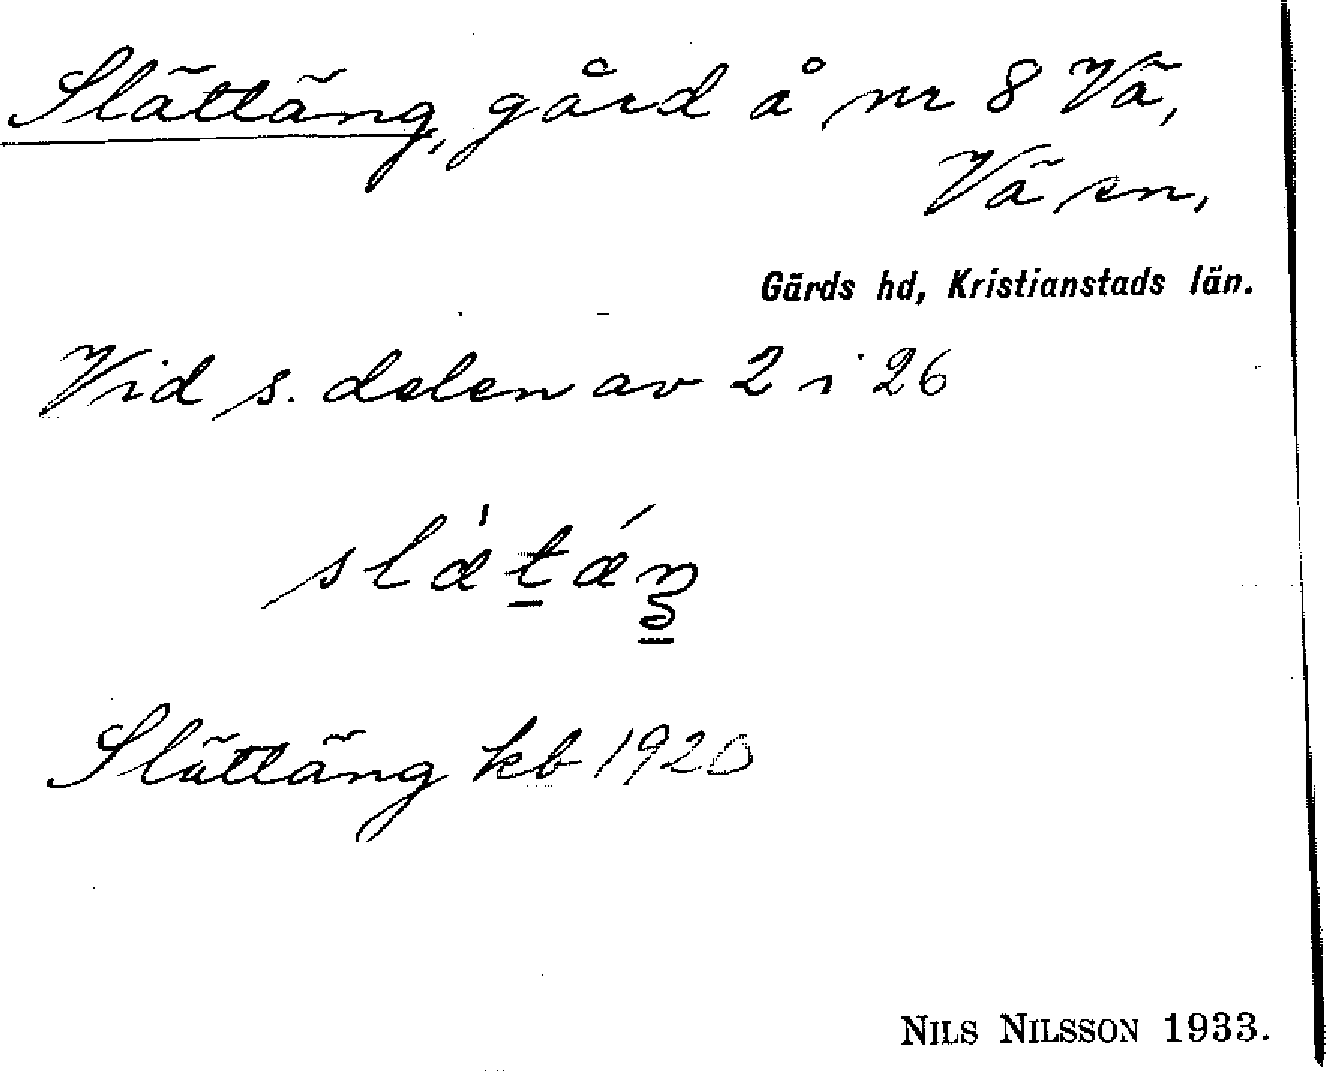 Slättäng, gård å nr 8 Vä,
Vä sn,
Gärds hd, Kristianstads län.
Vid s. delen av 2 i 26
slæ̀tǽŋ
Slättäng kb 1920
NILS NILSSON 1933.